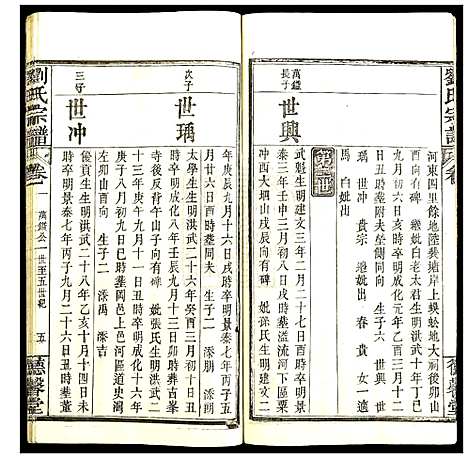 劉氏宗譜
河東四里餘地陸莫塘岸上蜈蚣地大城後卯山
酉向有碑 姚白老太君生明洪武十年丁巳
九月初六日亥時卒明成化元年三月十二
日丑時葬附夫塋側同向 生子三 世興
世瑀 世冲 貴宗 繼姚出 春 貴 女一適
馬 白姚出
第二世
萬鎰長子
世興
武魁生明建文三年二月二十二戌時卒明景
泰三年壬申三月初八日戌時葬流河下區粟
冲酉大姐山戌辰向有碑 姚孫氏生明建文二
年庚辰九月十六日戌時卒明景泰七年丙子五
月廿六日酉時葬同夫 生子二 添朋 添朗
次子
世瑀
太學生生明洪武二十六年癸酉三月初二日子
時卒明成化八年壬辰九月十三卯時葬吉峯
寺後反背午山子向有碑 姚張氏生明洪武二
十三年庚午九月初六日酉時卒明成化十六年
庚子八月初九日巳時葬岡邑上河區道史灣
左卯山酉向 生子二 添禹 添吉
三好
世冲
優貢生生明洪武二十八年乙亥十月十四日未
時卒明景泰七年丙子九月二十六日丑時葬董
劉氏宗譜 卷一
萬鎰公一世至五世紀
五
德馨堂